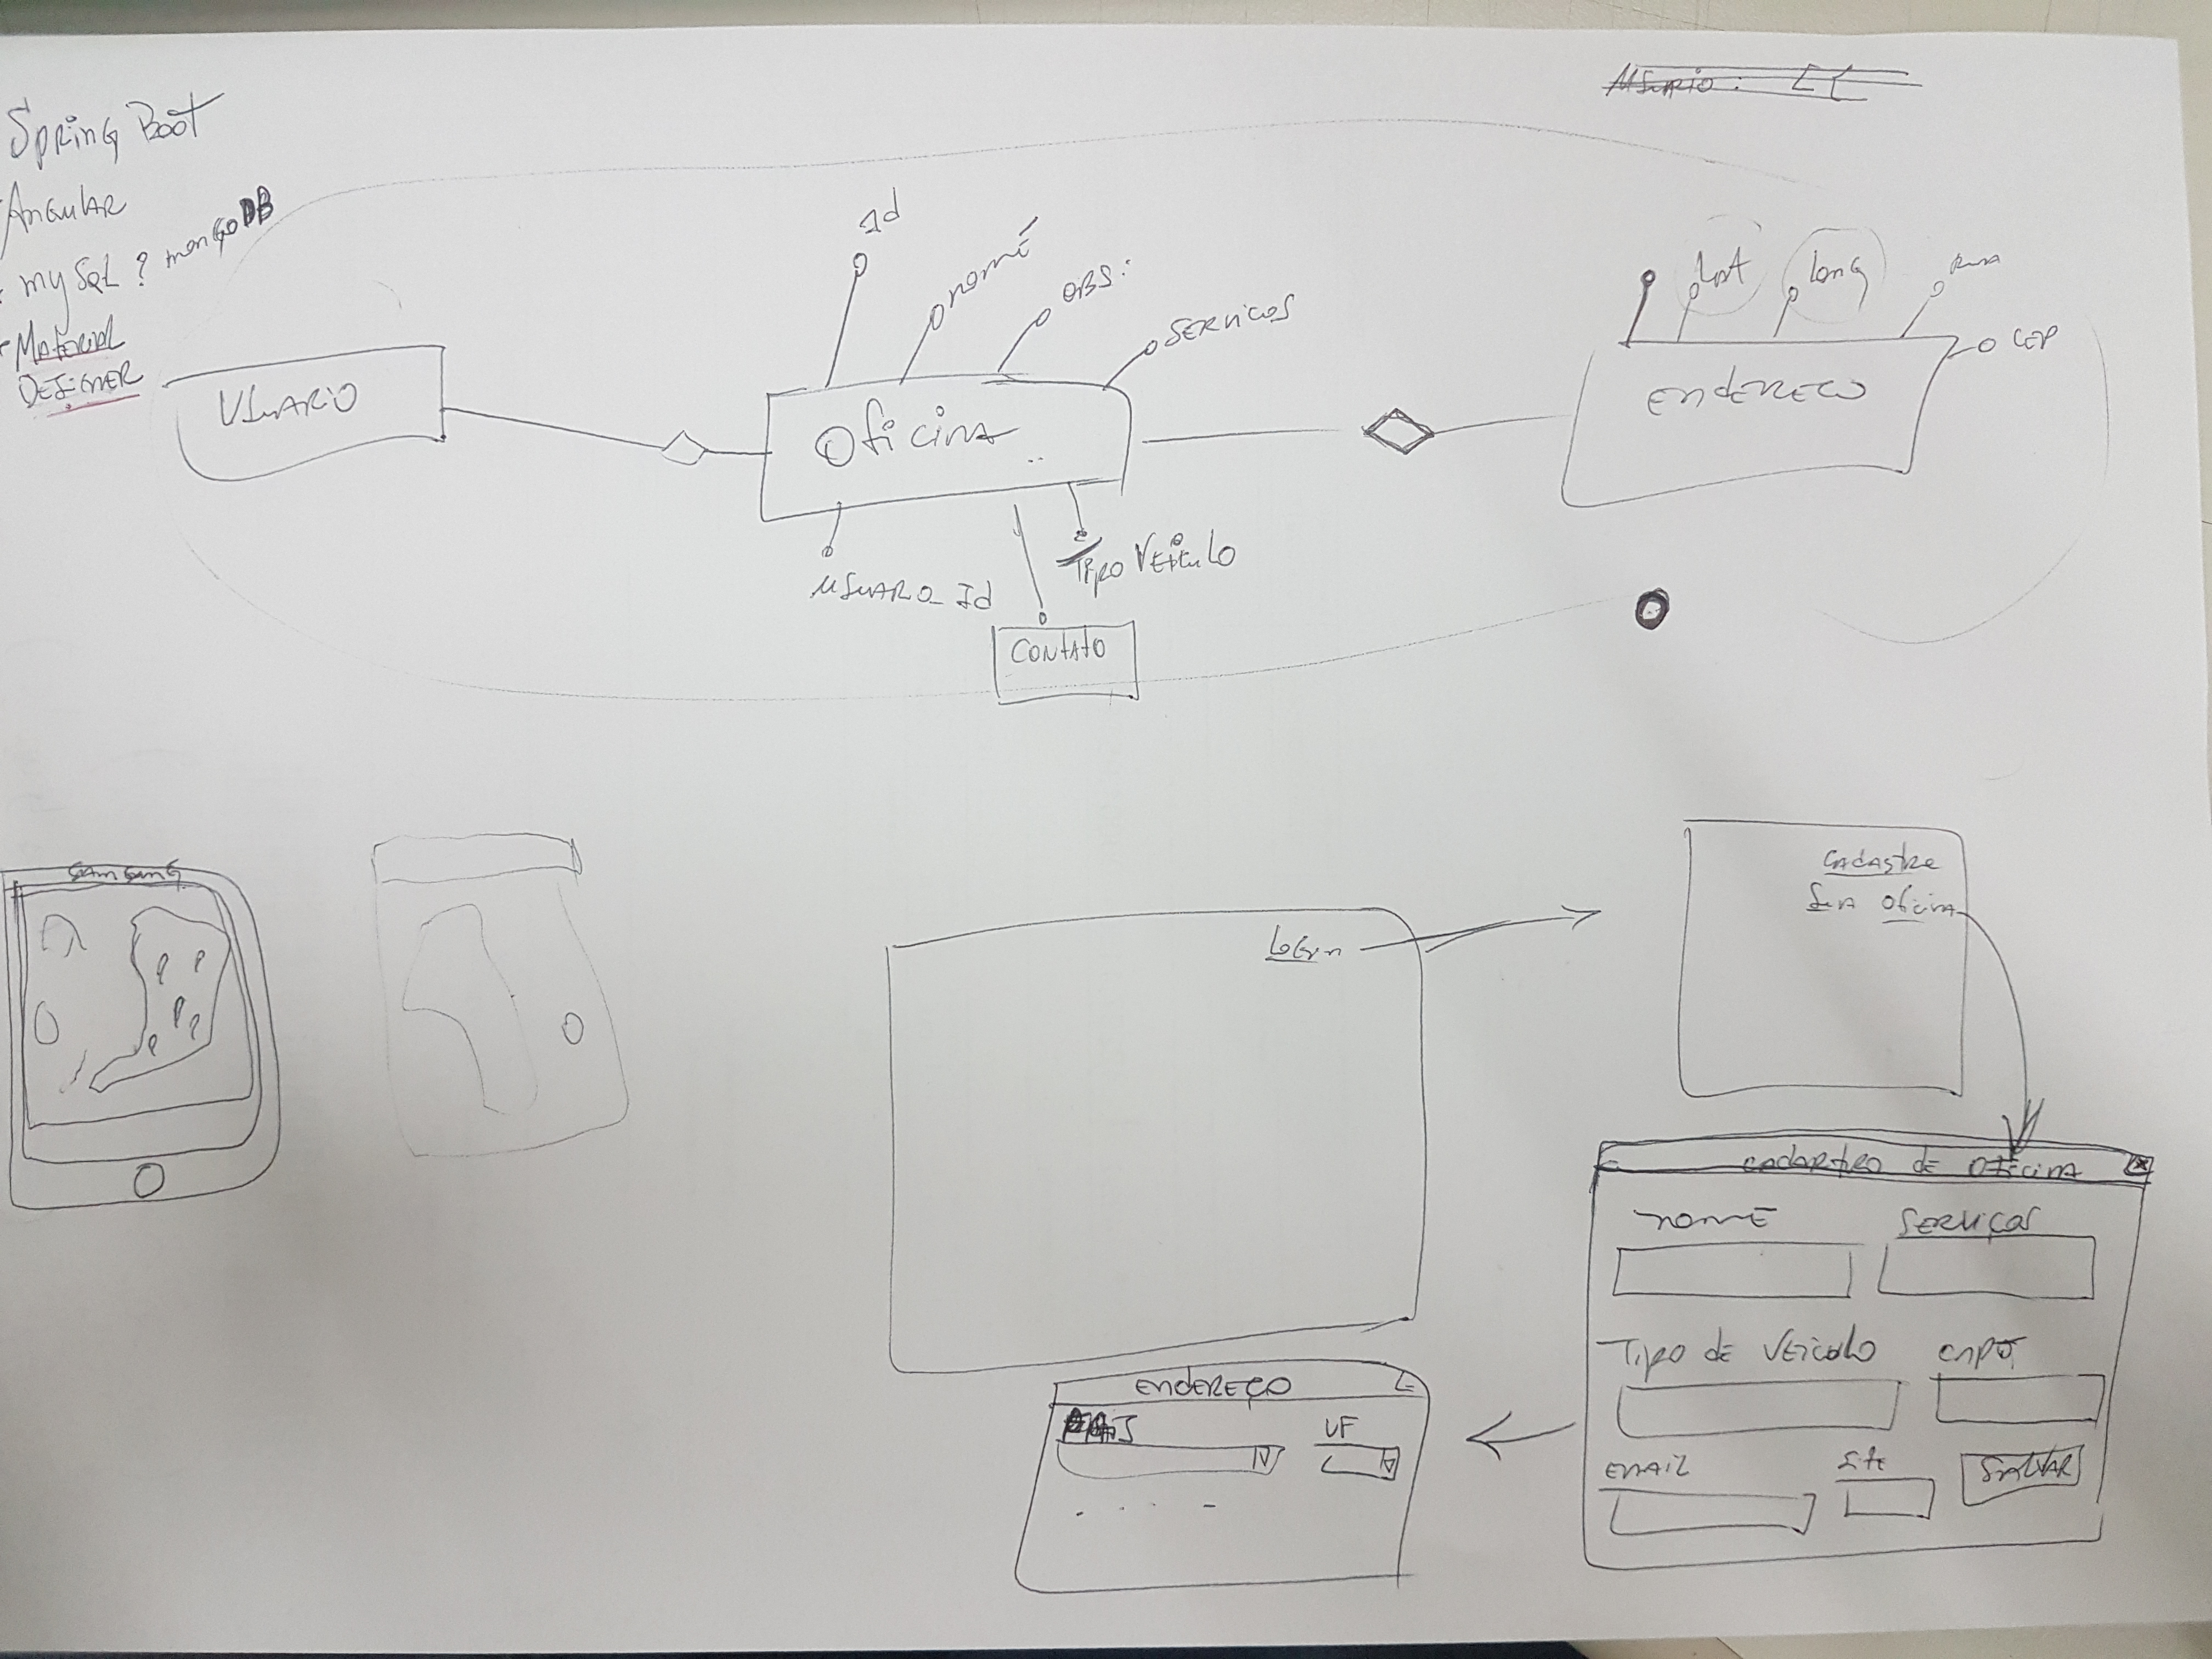 Spring Boot
Angular
mySql ? mongoDB
Material
DESIGNER
USUARIO
Oficina
id
nome
OBS:
SERVICOS
USUARO_Id
Tipo VEiculo
CONTATO
ENDERECO
lAt
long
rua
CEP
SAMSUNG
login
CADASTRE
SUA Oficina
cadastro de oficina
X
nome
SERVICOS
Tipo de VEiculo
CNPJ
EMAIL
Site
SALVAR
ENDERECO
UF